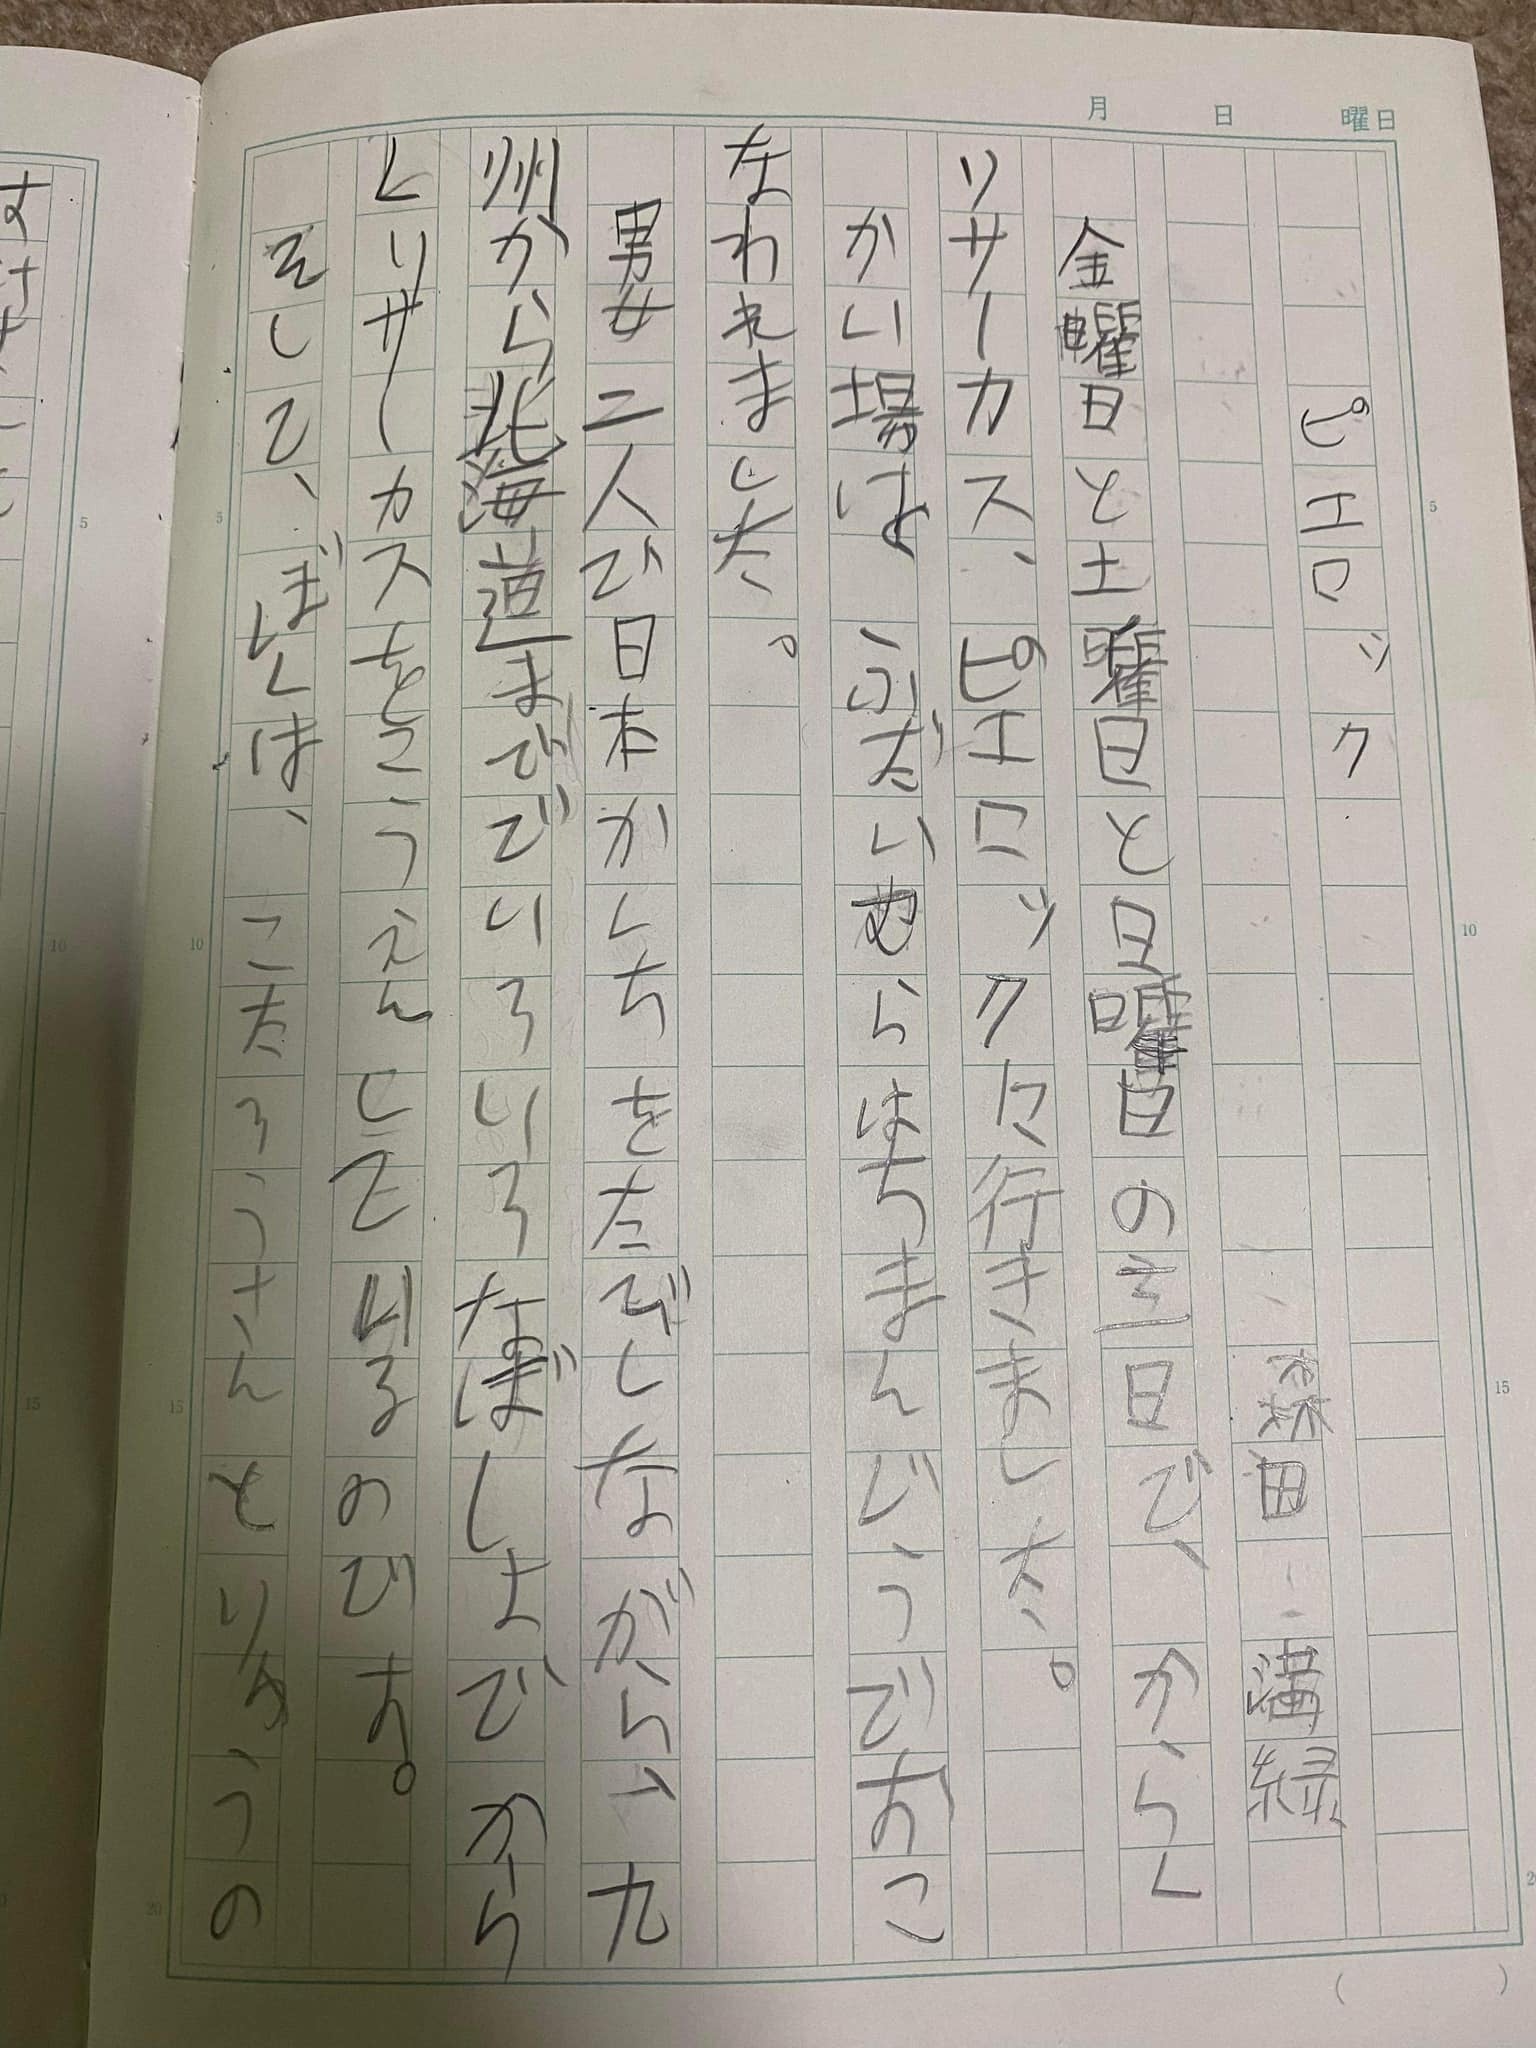 月　日　曜日
ピエロック
森田　溝縁
金曜日と土曜日と日曜日の三日で、からく
りサーカス、ピエロックに行きました。
かい場は　ふだいむらはちまんじうでおこ
なわれました。
男女二人で日本かしちをたびしながら、九
州から北海道まででいろいろなばしょでから
くりサーカスをこうえんしているのです。
そして、ぼくは、こたろうさんとりゅうの
5
10
15
20
5
10
15
20